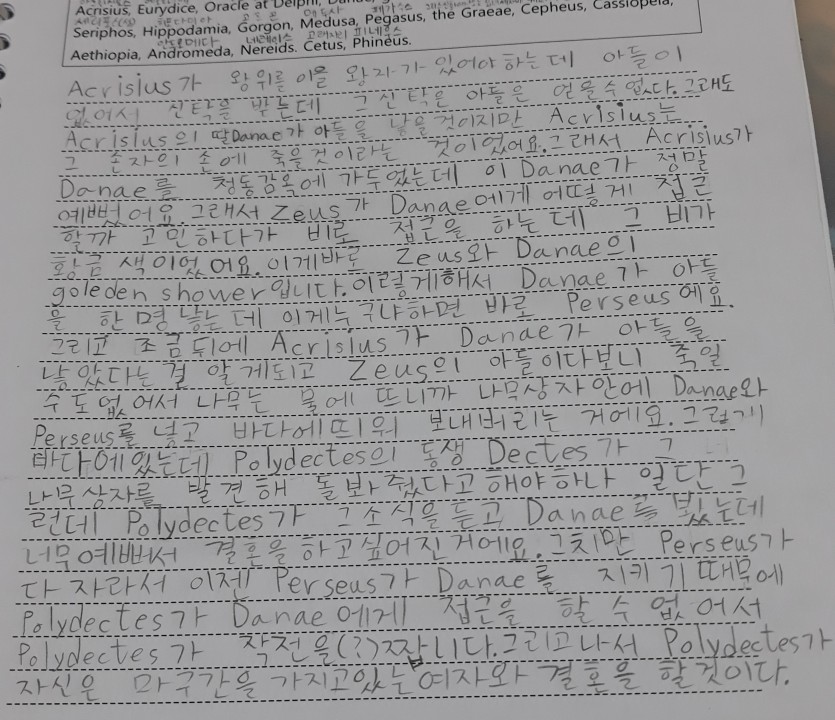 Acrisius, Eurydice, Oracle at Delphi,
Seriphos, Hippodamia, Gorgon, Medusa, Pegasus, the Graeae, Cepheus, Cassiopeia,
안드로메다
Aethiopia, Andromeda, Nereids. Cetus, Phineus.
Acrisius가 왕위를 이을 왕자가 있어야 하는데 아들이
없어서 신탁을 받는데 그 신탁은 아들은 얻을수없다.그래도
Acrisius의 딸Danae가 아들을 낳을것이지만 Acrisius는
그 손자의 손에 죽을것이라는 것이었어요.그래서 Acrisius가
Danae를 청동감옥에 가두었는데 이 Danae가 정말
예뻤어요.그래서 Zeus가 Danae에게 어떻게 접근
할까 고민하다가 비로 접근을 하는데 그 비가
황금색이었어요.이게바로 Zeus와 Danae의
goleden shower입니다.이렇게해서 Danae가 아들
을 한명 낳는데 이게누구냐하면 바로 Perseus에요.
그리고 조금뒤에 Acrisius가 Danae가 아들을
낳았다는걸 알게되고 Zeus의 아들이다보니 죽일
수도없어서 나무는 물에 뜨니까 나무상자안에 Danae와
Perseus를 넣고 바다에띄워 보내버리는 거에요.그렇게
바다에있는데 Polydectes의 동생 Dectes가 그
나무상자를 발견해 돌봐줬다고해야하나 일단 그
런데 Polydectes가 그소식을듣고 Danae를 봤는데
너무예뻐서 결혼을하고싶어진거에요.그치만 Perseus가
다 자라서 이젠 Perseus가 Danae를 지키기때문에
Polydectes가 Danae에게 접근을 할 수 없어서
Polydectes가 작전을(?)짭니다.그리고나서 Polydectes가
자신은 마구간을가지고있는여자와 결혼을 할것이다.